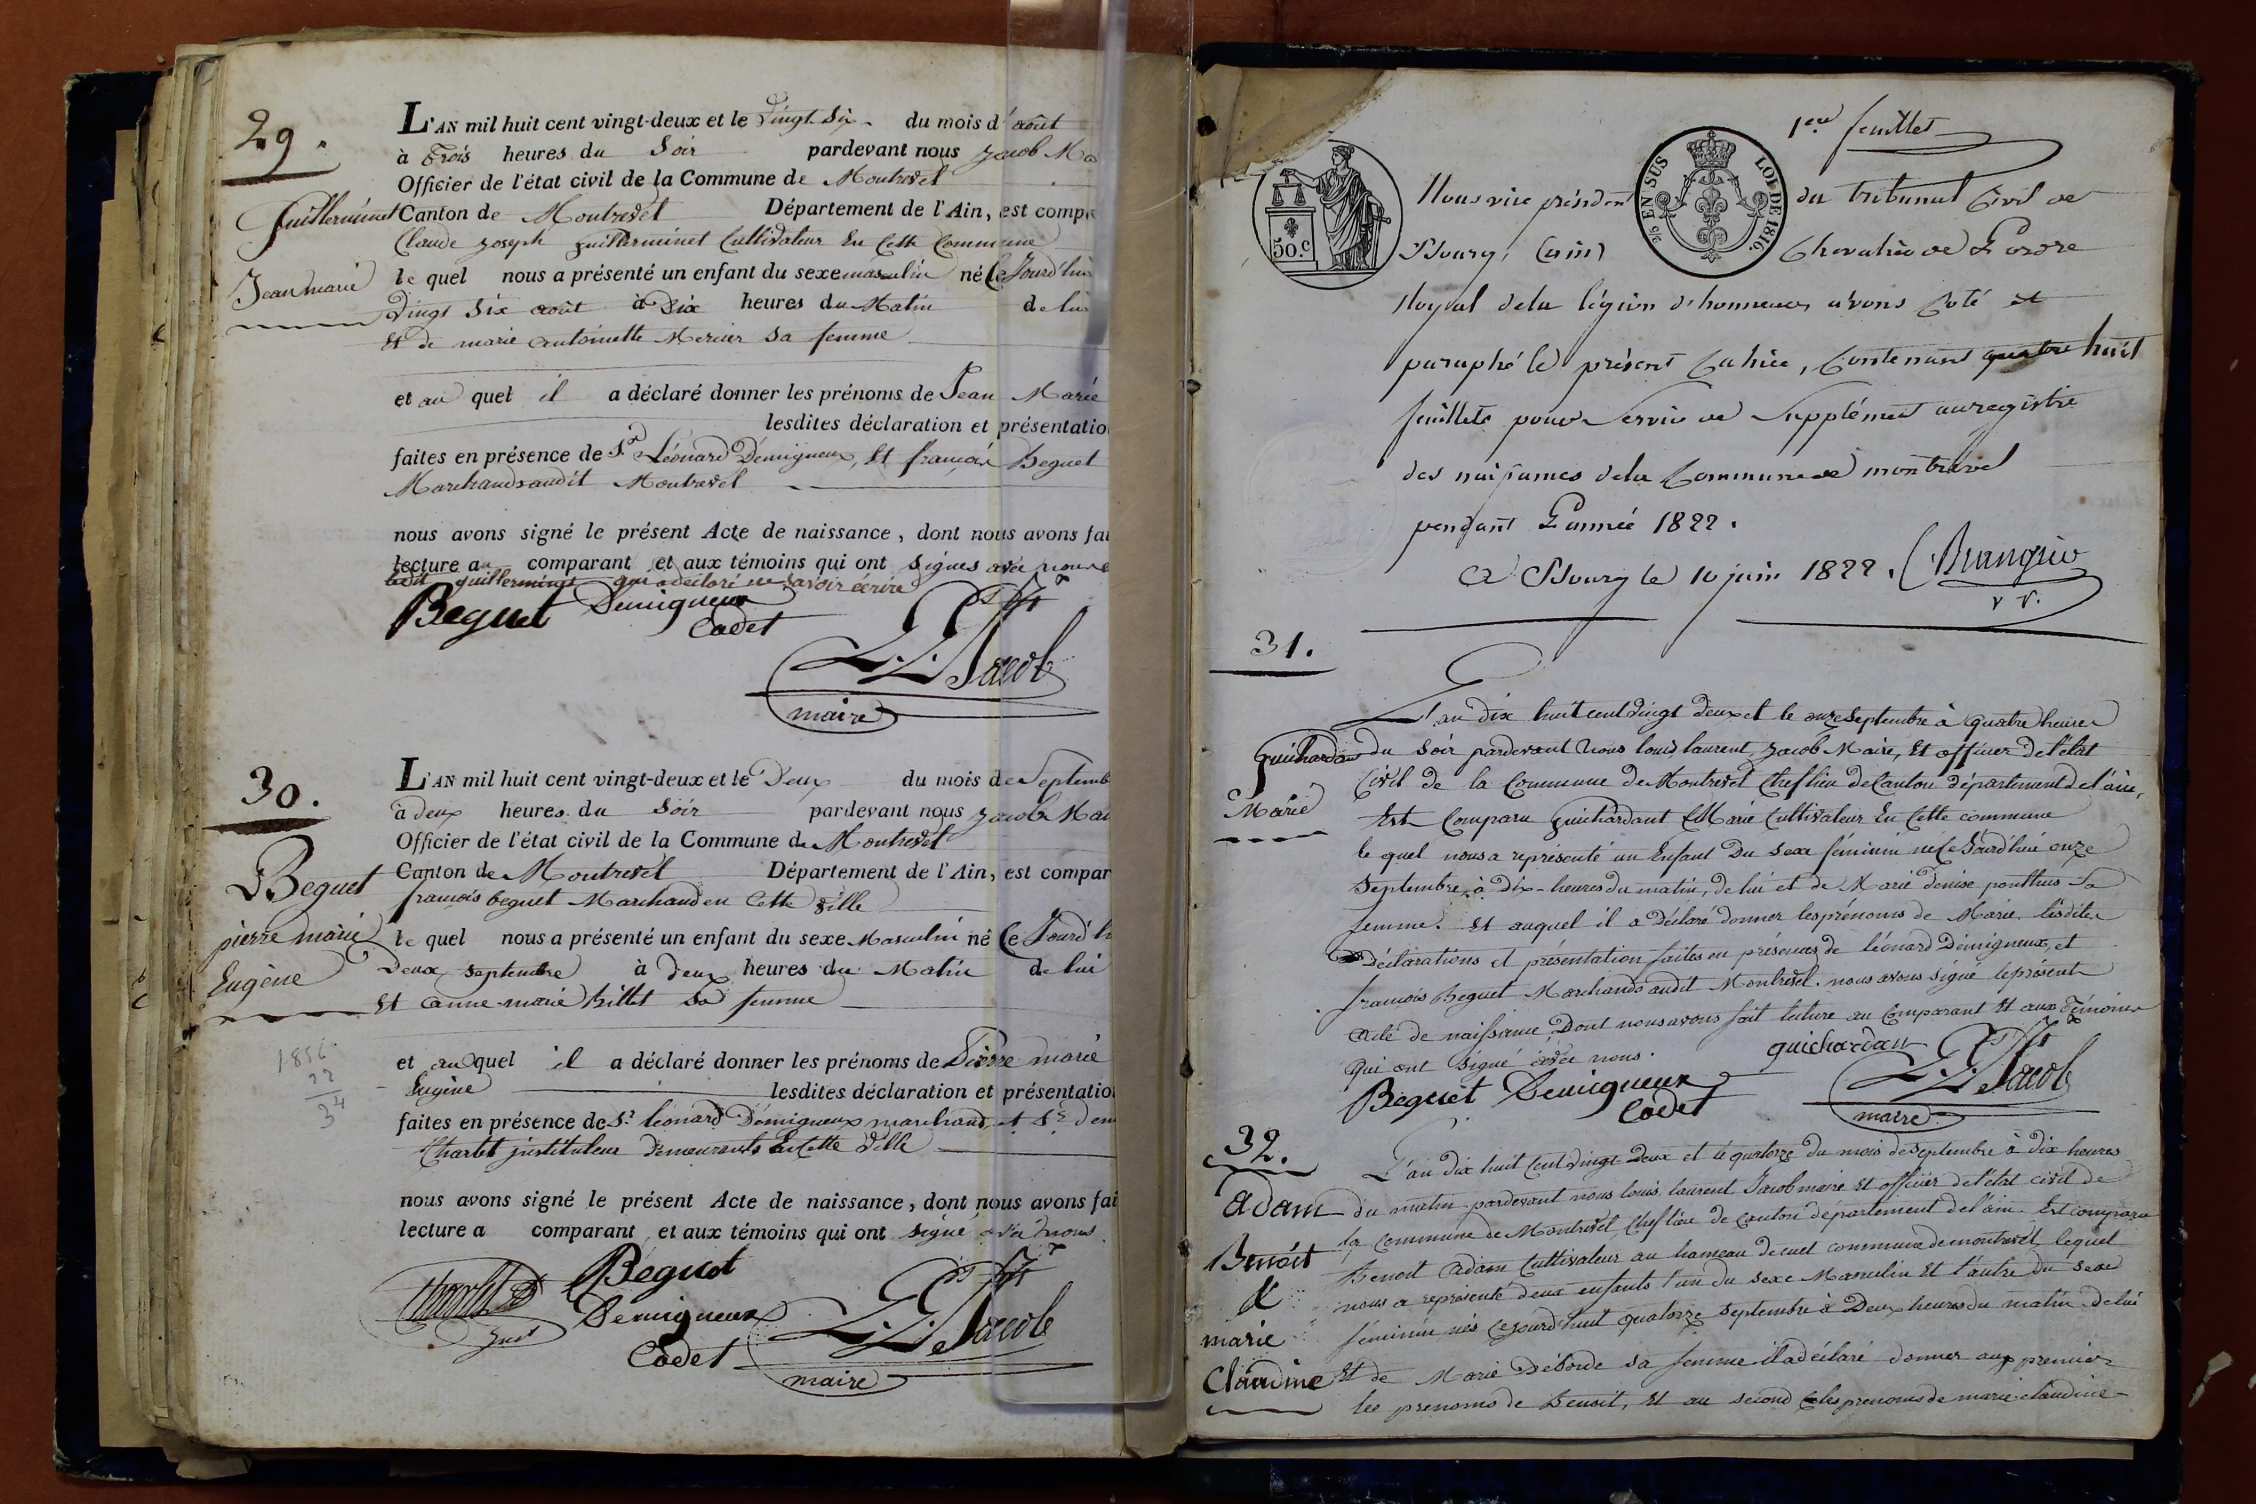 29.
Guillerminet
Jean marie
L'AN mil huit cent vingt-deux et le vingt Six du mois d'août
à trois heures du Soir pardevant nous Jacob Ma
Officier de l'état civil de la Commune de Montrevel
Canton de Montrevel Département de l'Ain, est compa
Claude Joseph Guillerminet Cultivateur En Cette Commune
le quel nous a présenté un enfant du sexe masculin né Ce Jourd'hui
vingt Six août à dix heures du Matin de lui
Et de marie antoinette Mercier sa femme
et au quel il a déclaré donner les prénoms de Jean Marie
lesdites déclaration et présentatio
faites en présence de Sr Léonard Démigneux, Et françois Beguet
Marchands audit Montrevel
nous avons signé le présent Acte de naissance, dont nous avons fai
lecture au comparant et aux témoins qui ont signés avec nous
ledit guillerminet qui a déclaré ne savoir écrire
Beguet Demigneux
Cadet
L.L. Jacob
maire
30.
Beguet
pierre marie
Eugène
1856
22
34
L'AN mil huit cent vingt-deux et le Deux du mois de Septemb
à deux heures du Soir pardevant nous Jacob Mai
Officier de l'état civil de la Commune de Montrevel
Canton de Montrevel Département de l'Ain, est compar
françois beguet Marchand en Cette ville
le quel nous a présenté un enfant du sexe Masculin né Ce Jourd'h
Deux septembre à deux heures du Matin de lui
Et anne marie billet Sa femme
et au quel il a déclaré donner les prénoms de Pierre marie
Eugène lesdites déclaration et présentatio
faites en présence de Sr léonard Démigneux marchand et Sr
Charlet instituteur demeurants En Cette ville
nous avons signé le présent Acte de naissance, dont nous avons fai
lecture a comparant et aux témoins qui ont signé avec nous.
Beguet
Demigneux
Cadet
L.L. Jacob
maire
1er feuillet
50.c
2/5 EN SUS
LOI DE 1816.
Nous vice président du tribunal Civil de
Bourg, (ain) Chevalier de L'ordre
Royal de la légion d'honneur, avons Coté et
paraphé le présent Cahier, Contenant quatre huit
feuillets pour Servir de Supplément au registre
des naissances de la Commune de montrevel
pendant L'année 1822.
A Bourg le 10 juin 1822.
31.
Guichardan
Marie
L'an dix huit cent vingt deux et le onze Septembre à quatre heures
du Soir pardevant Nous louis laurent Jacob Maire, Et officier de l'état
Civil de la Commune de Montrevel Chef lieu de Canton département de l'ain,
Est Comparu Guichardant Marie Cultivateur En Cette commune
le quel nous a représenté un Enfant Du Sexe féminin né Ce Jourd'hui onze
Septembre à dix heures du matin, de lui et de Marie denise ponthus Sa
femme. Et auquel il a déclaré donner les prénoms de Marie. lesdites
Déclarations et présentation faites en présences de léonard Démigneux, et
françois Beguet Marchands audit Montrevel. nous avons signé le présent
acte de naissance, Dont nous avons fait lecture au Comparant Et aux Témoins
Qui ont Signé avec nous.
guichardan
Beguet Demigneux
Cadet
L.L. Jacob
maire
32.
Adam
Benoit
&
marie
Claudine
L'an dix huit Cent vingt Deux et le quatorze du mois de Septembre à dix heures
du matin pardevant nous louis laurent Jacob maire Et officier de l'état civil de
la Commune de Montrevel, Chef lieu de Canton département de l'ain. Est comparu
Benoit Adam Cultivateur au hameau de cuet commune de montrevel lequel
nous a représenté deux enfants l'un du sexe Masculin Et l'autre du sexe
féminin nés Cejourd'huit quatorze septembre à Deux heures du matin de lui
Et de Marie Déborde sa femme il a déclaré donner aux premier
les prenoms de Benoit, Et au second les prenoms de marie claudine